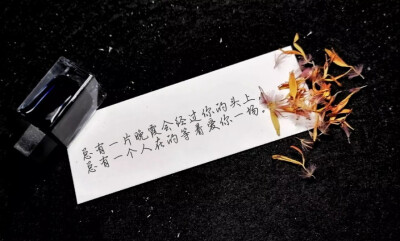 总有一片晚霞会经过你的头上，
总有一个人在的等着爱你一场。